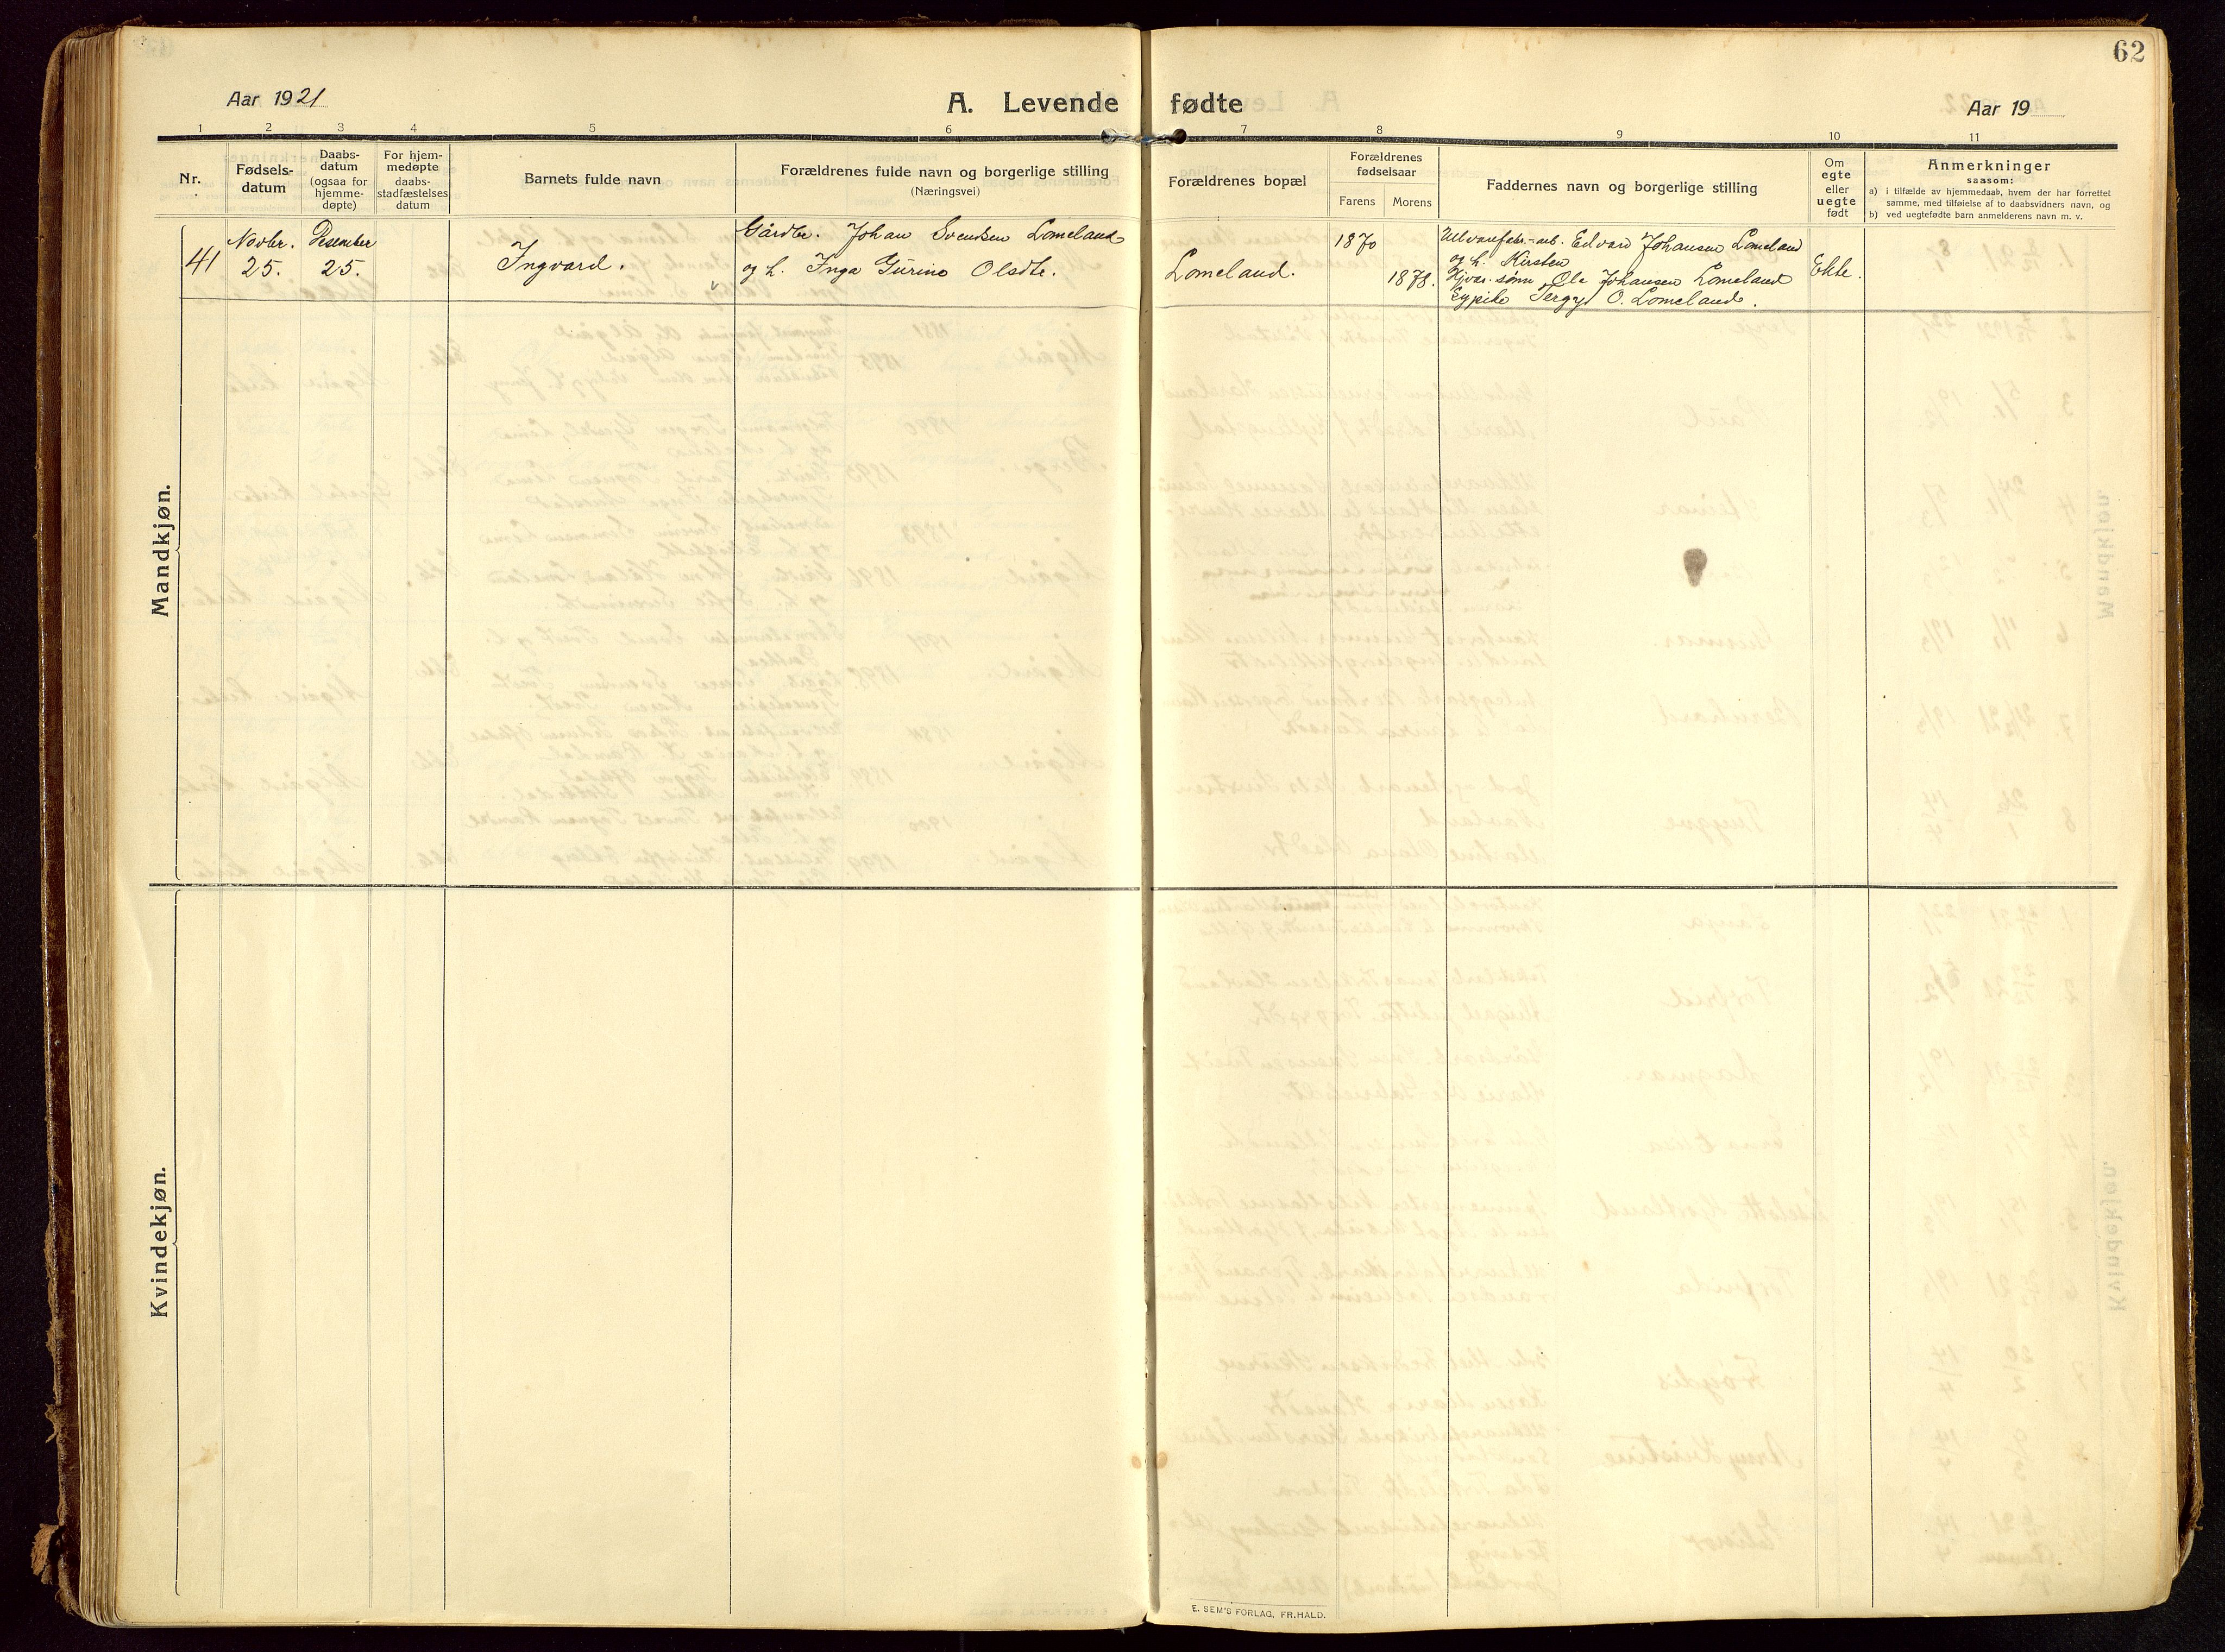 62
Aar 1921
A. Levende fødte
Aar 19
1 2 3 4 5 6 7 8 9 10 11
Nr.
Fødsels-
datum
Daabs-
datum
(ogsaa for
hjemme-
døpte)
For hjem-
medøpte
daabs-
stadfæstelses
datum
Barnets fulde navn
Forældrenes fulde navn og borgerlige stilling
(Næringsvei)
Forældrenes bopæl
Forældrenes
fødselsaar
Farens Morens
Faddernes navn og borgerlige stilling
Om
egte
eller
uegte
født
Anmerkninger
saasom:
a) i tilfælde av hjemmedaab, hvem der har forrettet
samme, med tilføielse af to daabsvidners navn, og
b) ved uegtefødte barn anmelderens navn m. v.
Mandkjøn.
41
Novbr.
25.
Desember
25.
Ingvard.
Gårdbr. Johan Svendsen Lomeland
og h. Inga Gurine Olsdtr.
Lomeland.
1870
1878.
Uldvarefabr.-arb. Edvard Johansen Lomeland
og h. Kirsten
Ole Johansen Lomeland
O. Lomeland.
Ekte.
Kvindekjøn.
E. SEM'S FORLAG, FR.HALD.